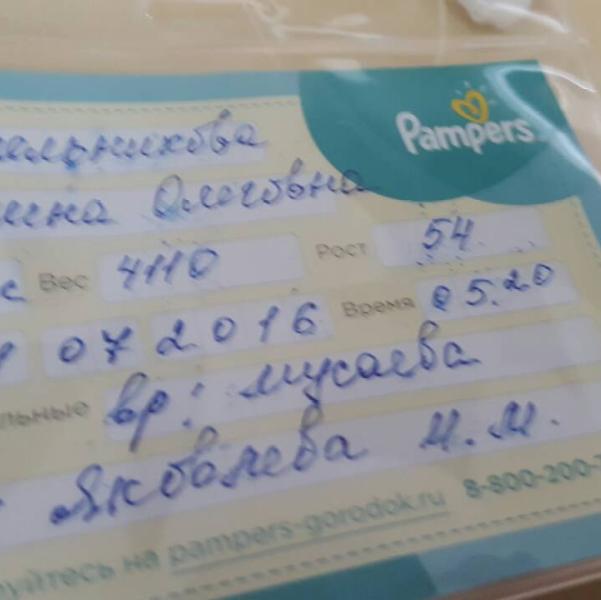 Pampers
ельникова
ина Олеговна
Вес 4110 Рост 54
07 2016 Время 05.20
льные вр: мусаева
Яковлева М.М.
руйтесь на pampers-gorodok.ru 8-800-200-